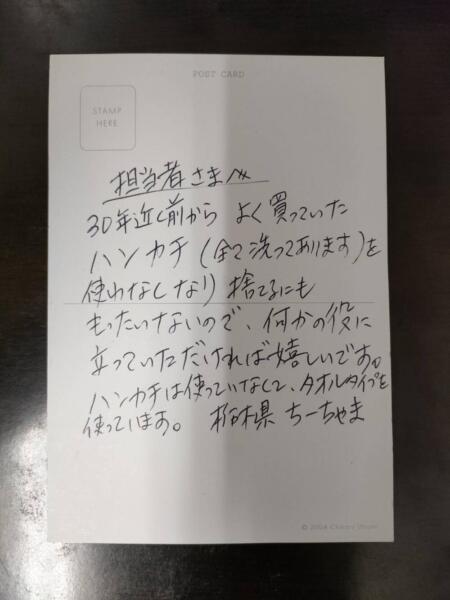 POST CARD
STAMP
HERE
担当者さまへ
30年近く前から よく買っていた
ハンカチ(全て洗ってあります)を
使わなくなり 捨てるにも
もったいないので、何かの役に
立っていただければ嬉しいです。
ハンカチは使っていなくて、タオルタイプを
使っています。 栃木県 ちーちゃま